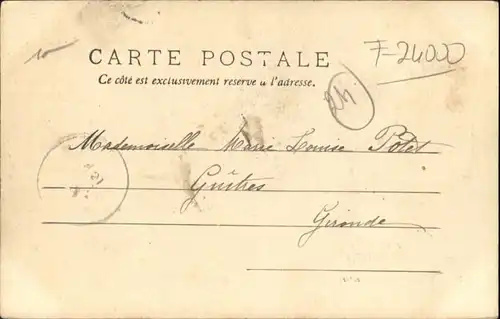 10
F-24000
CARTE POSTALE
Ce côté est exclusivement reserve a l'adresse.
24
Mademoiselle Marie Louise Potet
21
Guîtres
Gironde